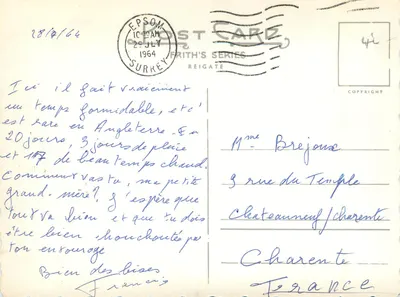 28/7/64
EPSOM
10 AM
28 JLY
1964
SURREY
POST CARD
FRITH'S SERIES
REIGATE
4d
COPYRIGHT
Ici il fait vraiment
un temps formidable, et c'
est rare en Angleterre. En
20 jours, 3 jours de pluie
et 17 de beau temps chaud.
Comment vas tu, ma petite
grand-mère? J'espère que
tout va bien et que tu dois
être bien chouchoutée par
ton entourage
Bien des bises
Francis
Mme Brejoux
3 rue du Temple
Chateauneuf/charente
Charente
France